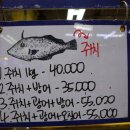 쥐치
1 쥐치 1kg - 40,000
2 쥐치 + 방어 - 35,000
3 쥐치 + 광어 + 방어 - 55,000
4 쥐치 + 광어 + 오징어 - 55,000